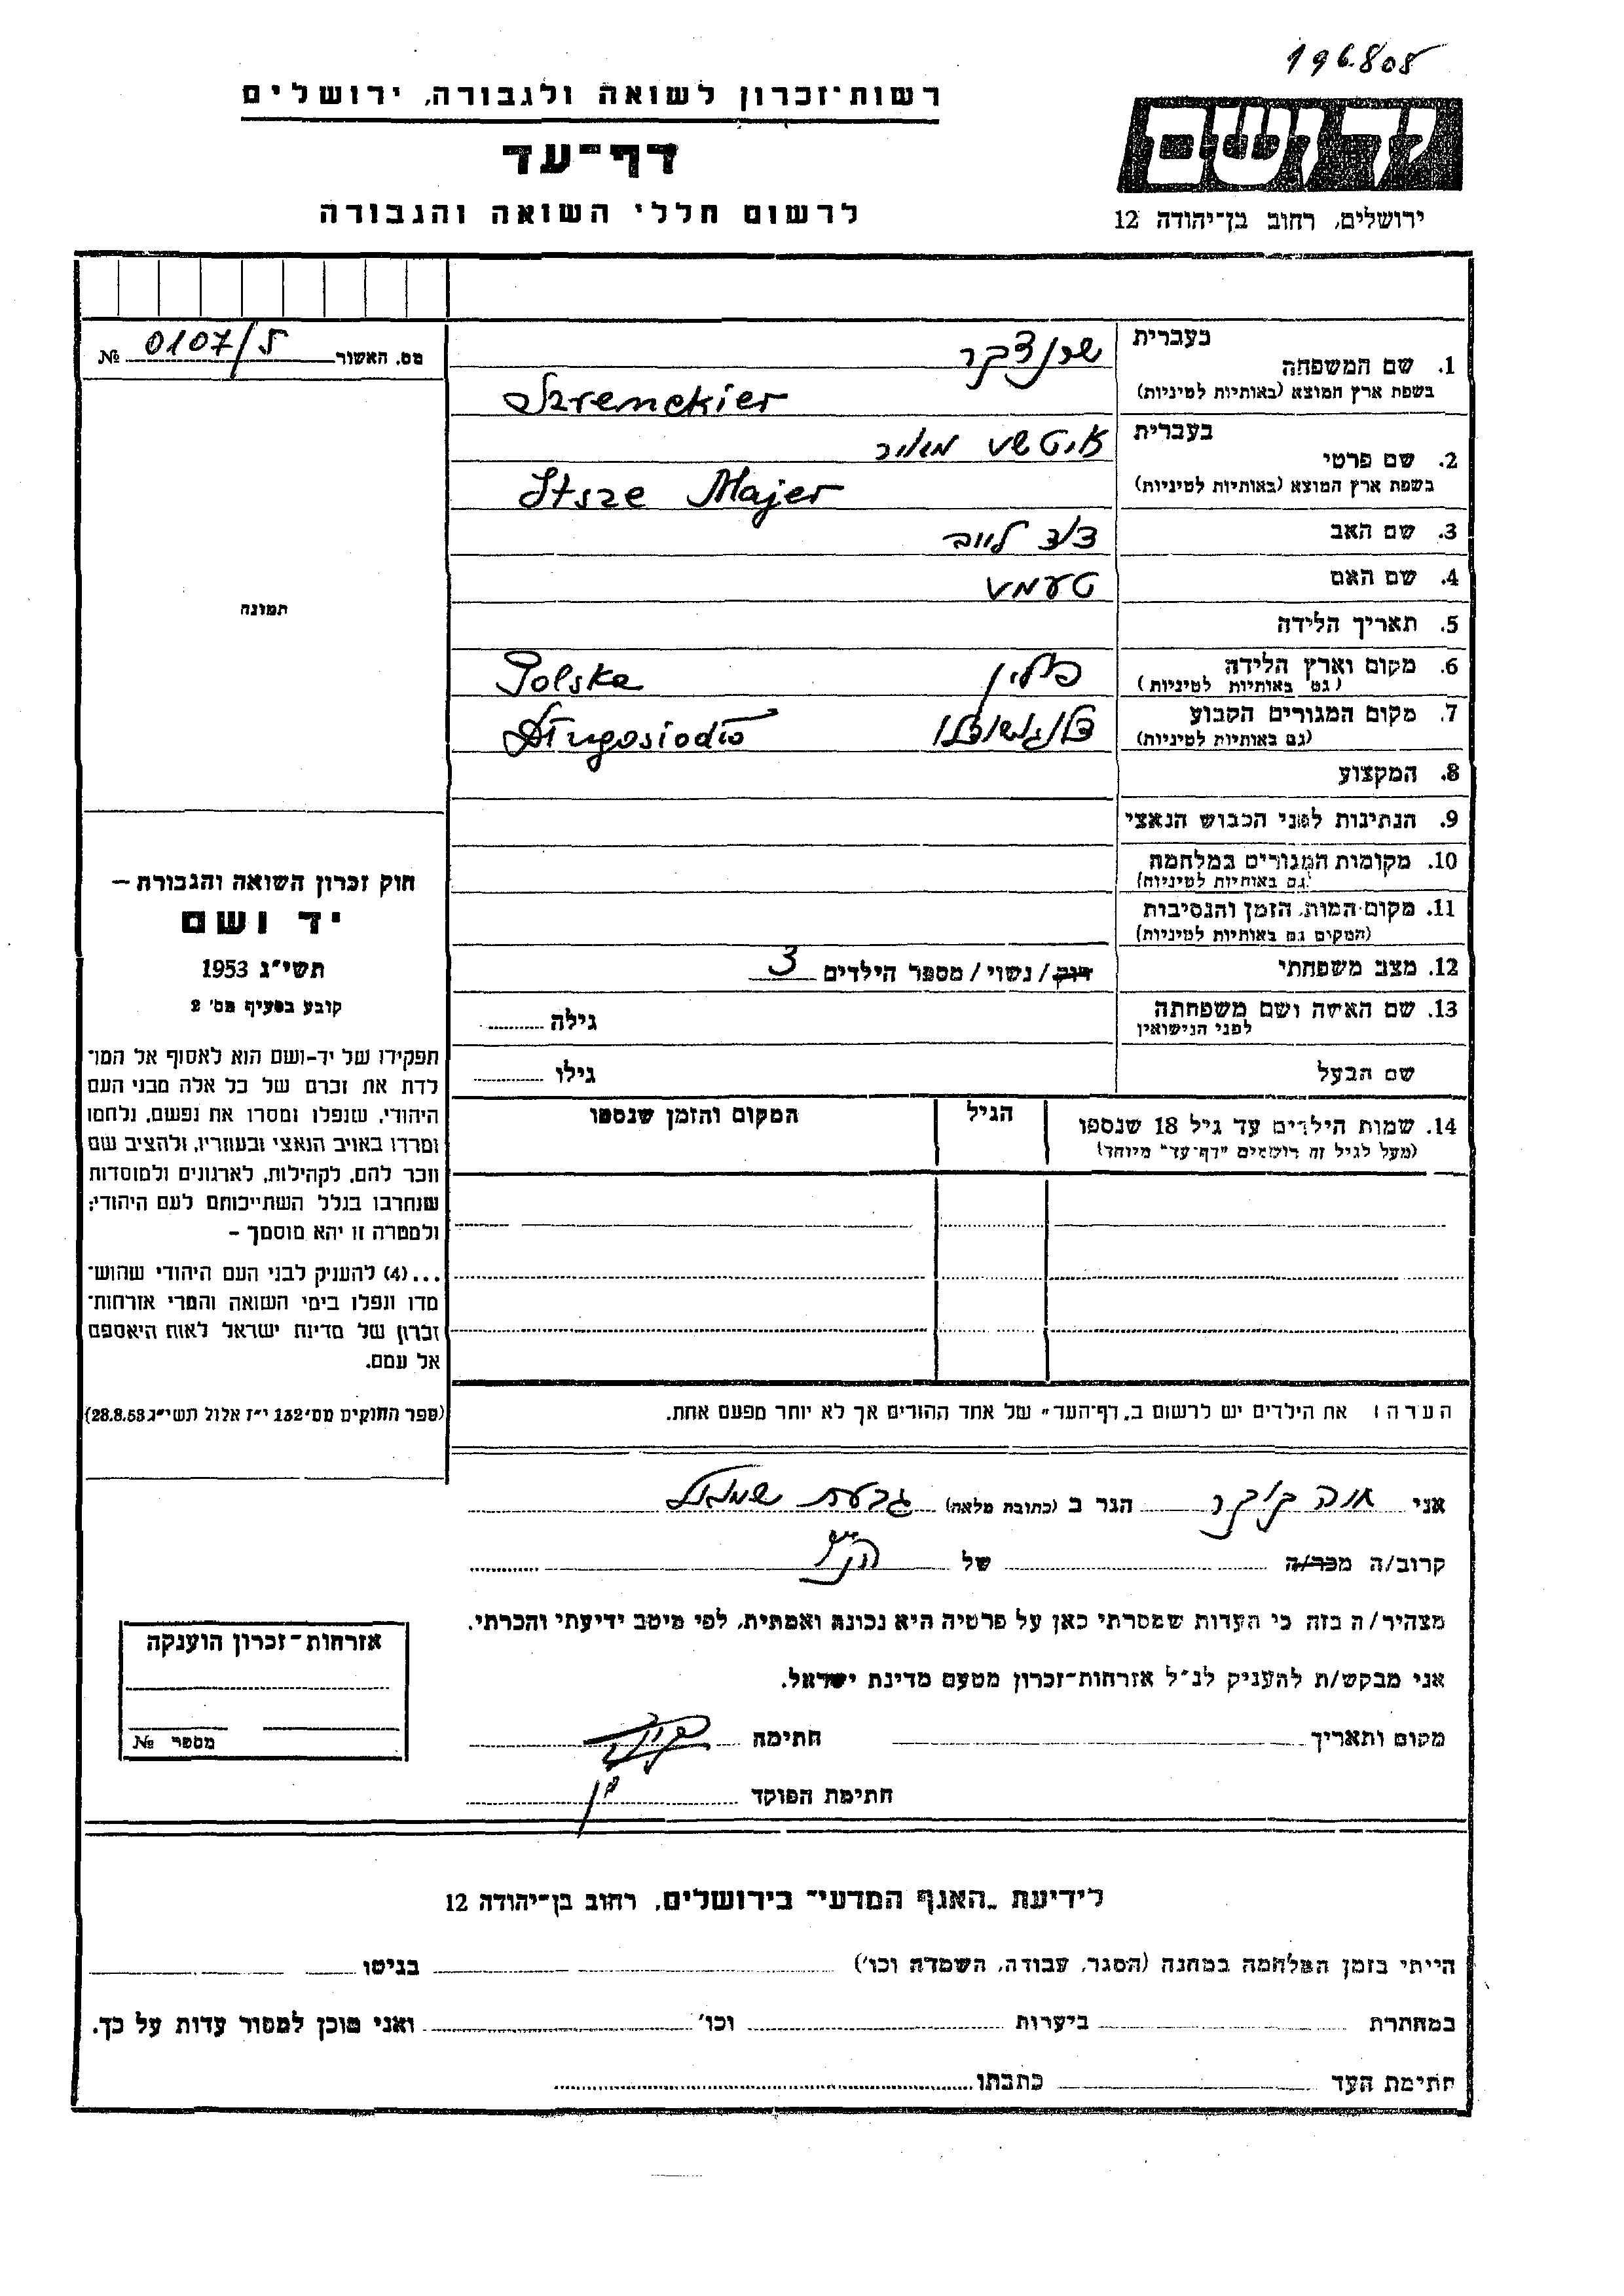 196.808
רשות־זכרון לשואה ולגבורה, ירושלים
דף־עד
לרשום חללי השואה והגבורה
יד ושם
ירושלים, רחוב בן־יהודה 12
מס. האשור 0107/5 №
תמונה
חוק זכרון השואה והגבורה –
יד ושם
תשי"ג 1953
קובע בסעיף מס' 2
תפקידו של יד-ושם הוא לאסוף אל המו־
לדת את זכרם של כל אלה מבני העם
היהודי, שנפלו ומסרו את נפשם, נלחמו
ומרדו באויב הנאצי ובעוזריו, ולהציב שם
וזכר להם, לקהילות, לארגונים ולמוסדות
שנחרבו בגלל השתייכותם לעם היהודי;
ולמטרה זו יהא מוסמך –
...(4) להעניק לבני העם היהודי שהוש־
מדו ונפלו בימי השואה והמרי אזרחות־
זכרון של מדינת ישראל לאות היאספם
אל עמם.
(ספר החוקים מס' 132 י"ז אלול תשי"ג 28.8.53)
בעברית
1. שם המשפחה שרנצקר
בשפת ארץ המוצא (באותיות לטיניות) Szrenckier
בעברית
2. שם פרטי איטשע מאיר
בשפת ארץ המוצא (באותיות לטיניות) Itsze Majer
3. שם האב לייב
4. שם האם טעמע
5. תאריך הלידה
6. מקום וארץ הלידה פולין Polska
(גם באותיות לטיניות)
7. מקום המגורים הקבוע Długosiodło
(גם באותיות לטיניות)
8. המקצוע
9. הנתינות לפני הכבוש הנאצי
10. מקומות המגורים במלחמה
(גם באותיות לטיניות)
11. מקום המות, הזמן והנסיבות
(המקום גם באותיות לטיניות)
12. מצב משפחתי רווק/ נשוי/ מספר הילדים 3
13. שם האישה ושם משפחתה גילה
לפני הנישואין
שם הבעל גילו
14. שמות הילדים עד גיל 18 שנספו הגיל המקום והזמן שנספו
(מעל לגיל זה רושמים "דף־עד" מיוחד)
הערה: את הילדים יש לרשום ב"דף־העד" של אחד ההורים אך לא יותר מפעם אחת.
אני הגר ב (כתובת מלאה) גבעת שמואל
קרוב/ה מכר/ה של הנ"ל
מצהיר/ה בזה כי העדות שמסרתי כאן על פרטיה היא נכונה ואמתית, לפי מיטב ידיעתי והכרתי.
אני מבקש/ת להעניק לנ"ל אזרחות־זכרון מטעם מדינת ישראל.
מקום ותאריך חתימה
חתימת הפוקד
אזרחות־זכרון הוענקה
מספר №
לידיעת „האגף המדעי" בירושלים, רחוב בן־יהודה 12
הייתי בזמן המלחמה במחנה (הסגר, עבודה, השמדה וכו') בגיטו
במחתרת ביערות וכו' ואני מוכן למסור עדות על כך.
חתימת העד כתבתו